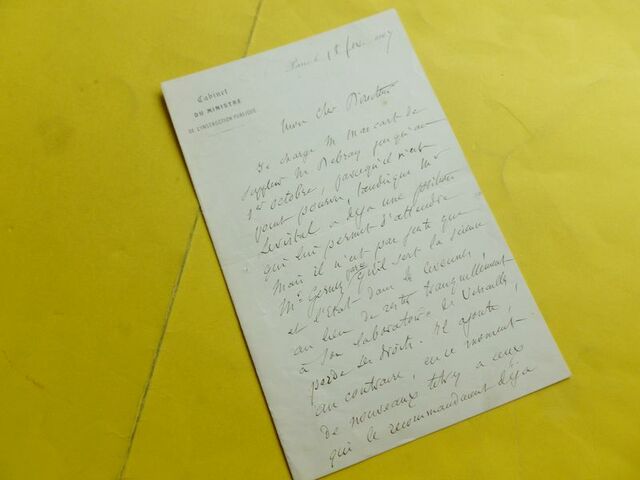 Cabinet
DU MINISTRE
DE L'INSTRUCTION PUBLIQUE
Mon Cher Directeur
Je charge M Mascart de
suppléer M Debray jusqu'au
1er octobre, parcequ'il n'est
point pourvu, tandis que Mr
Levistal a déjà une position
qui lui permet d'attendre
Mais il n'est pas juste que
Mr Gernez parce qu'il sert la science
et l'Etat dans le
au lieu de rester tranquillement
à son laboratoire de Versailles
perde ses droits. Il ajoute,
au contraire, en ce moment
de nouveaux titres à ceux
qui le recommandaient déjà